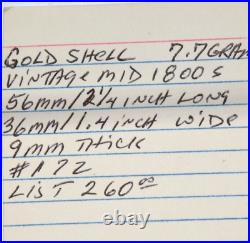 GOLD SHELL 7.7 GRAM
VINTAGE MID 1800s
56mm/2 1/4 INCH LONG
36mm/1.4 INCH WIDE
9mm THICK
#172
LIST 260⁰⁰
thejewelrybox